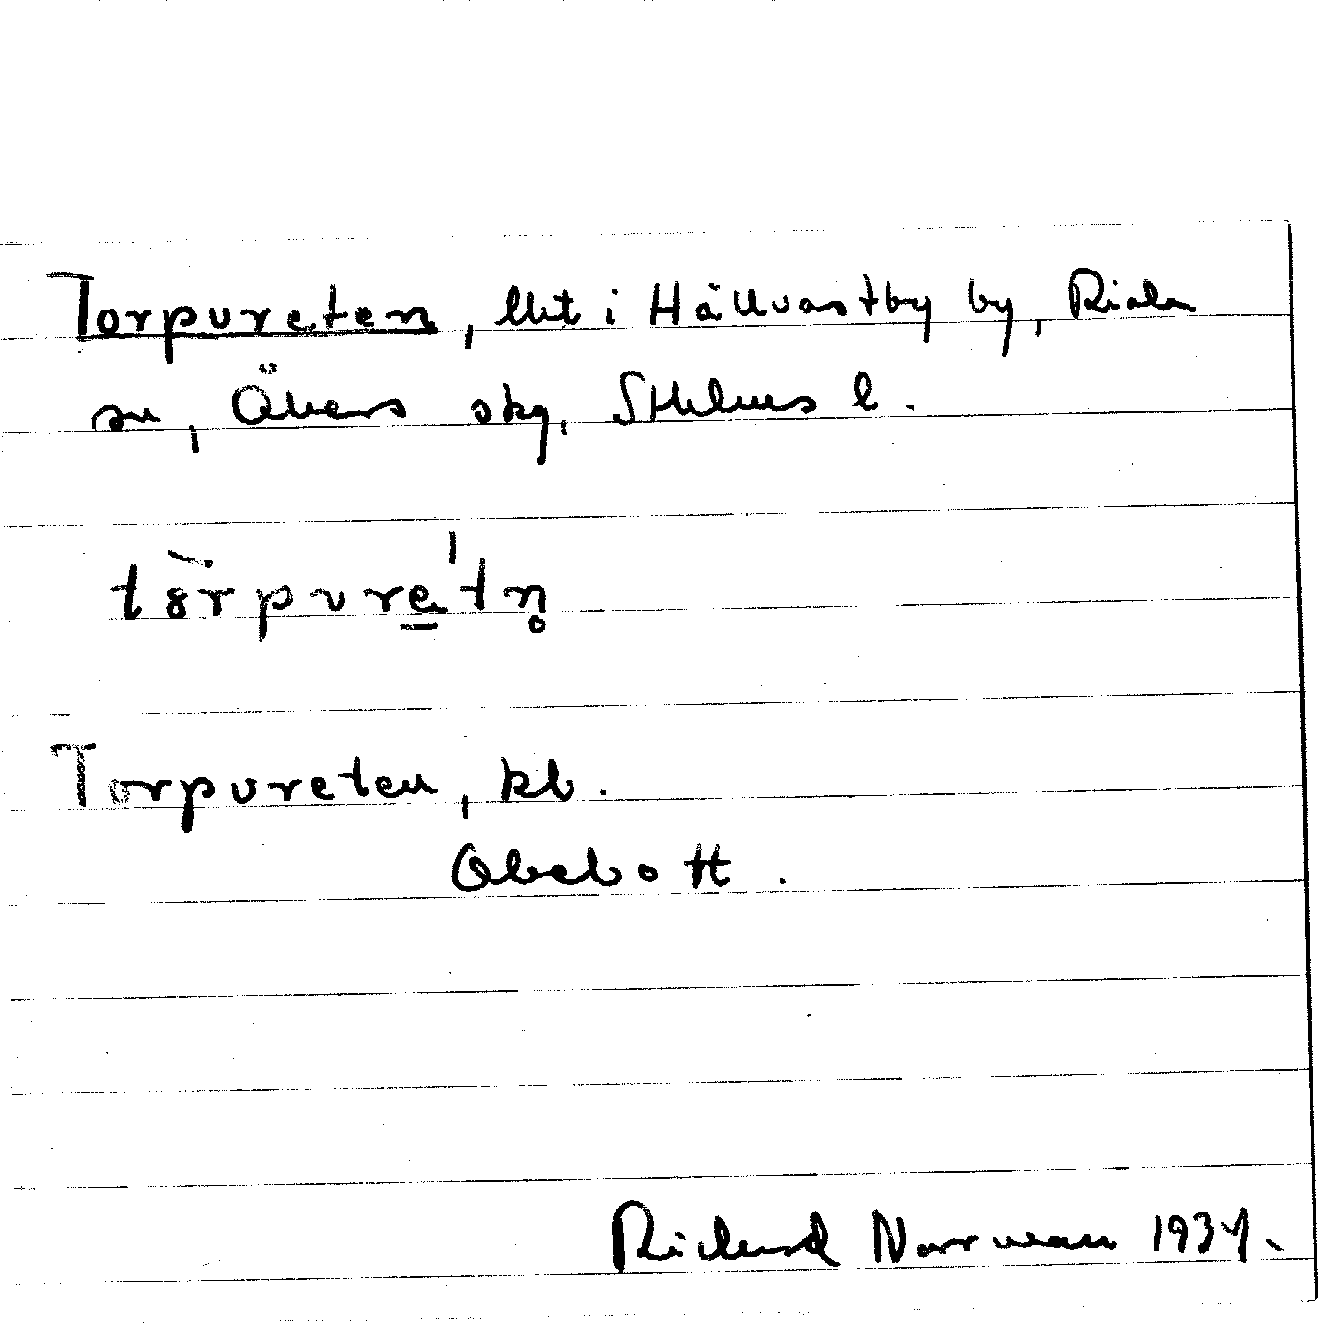 Torpvreten, lht i Hällvastby by, Riala
sn, Åkers skg, Sthlms l.
tòrpvre̲'tn̥
Torpvreten, kb.
Obebott.
Richard Norrman 1934.